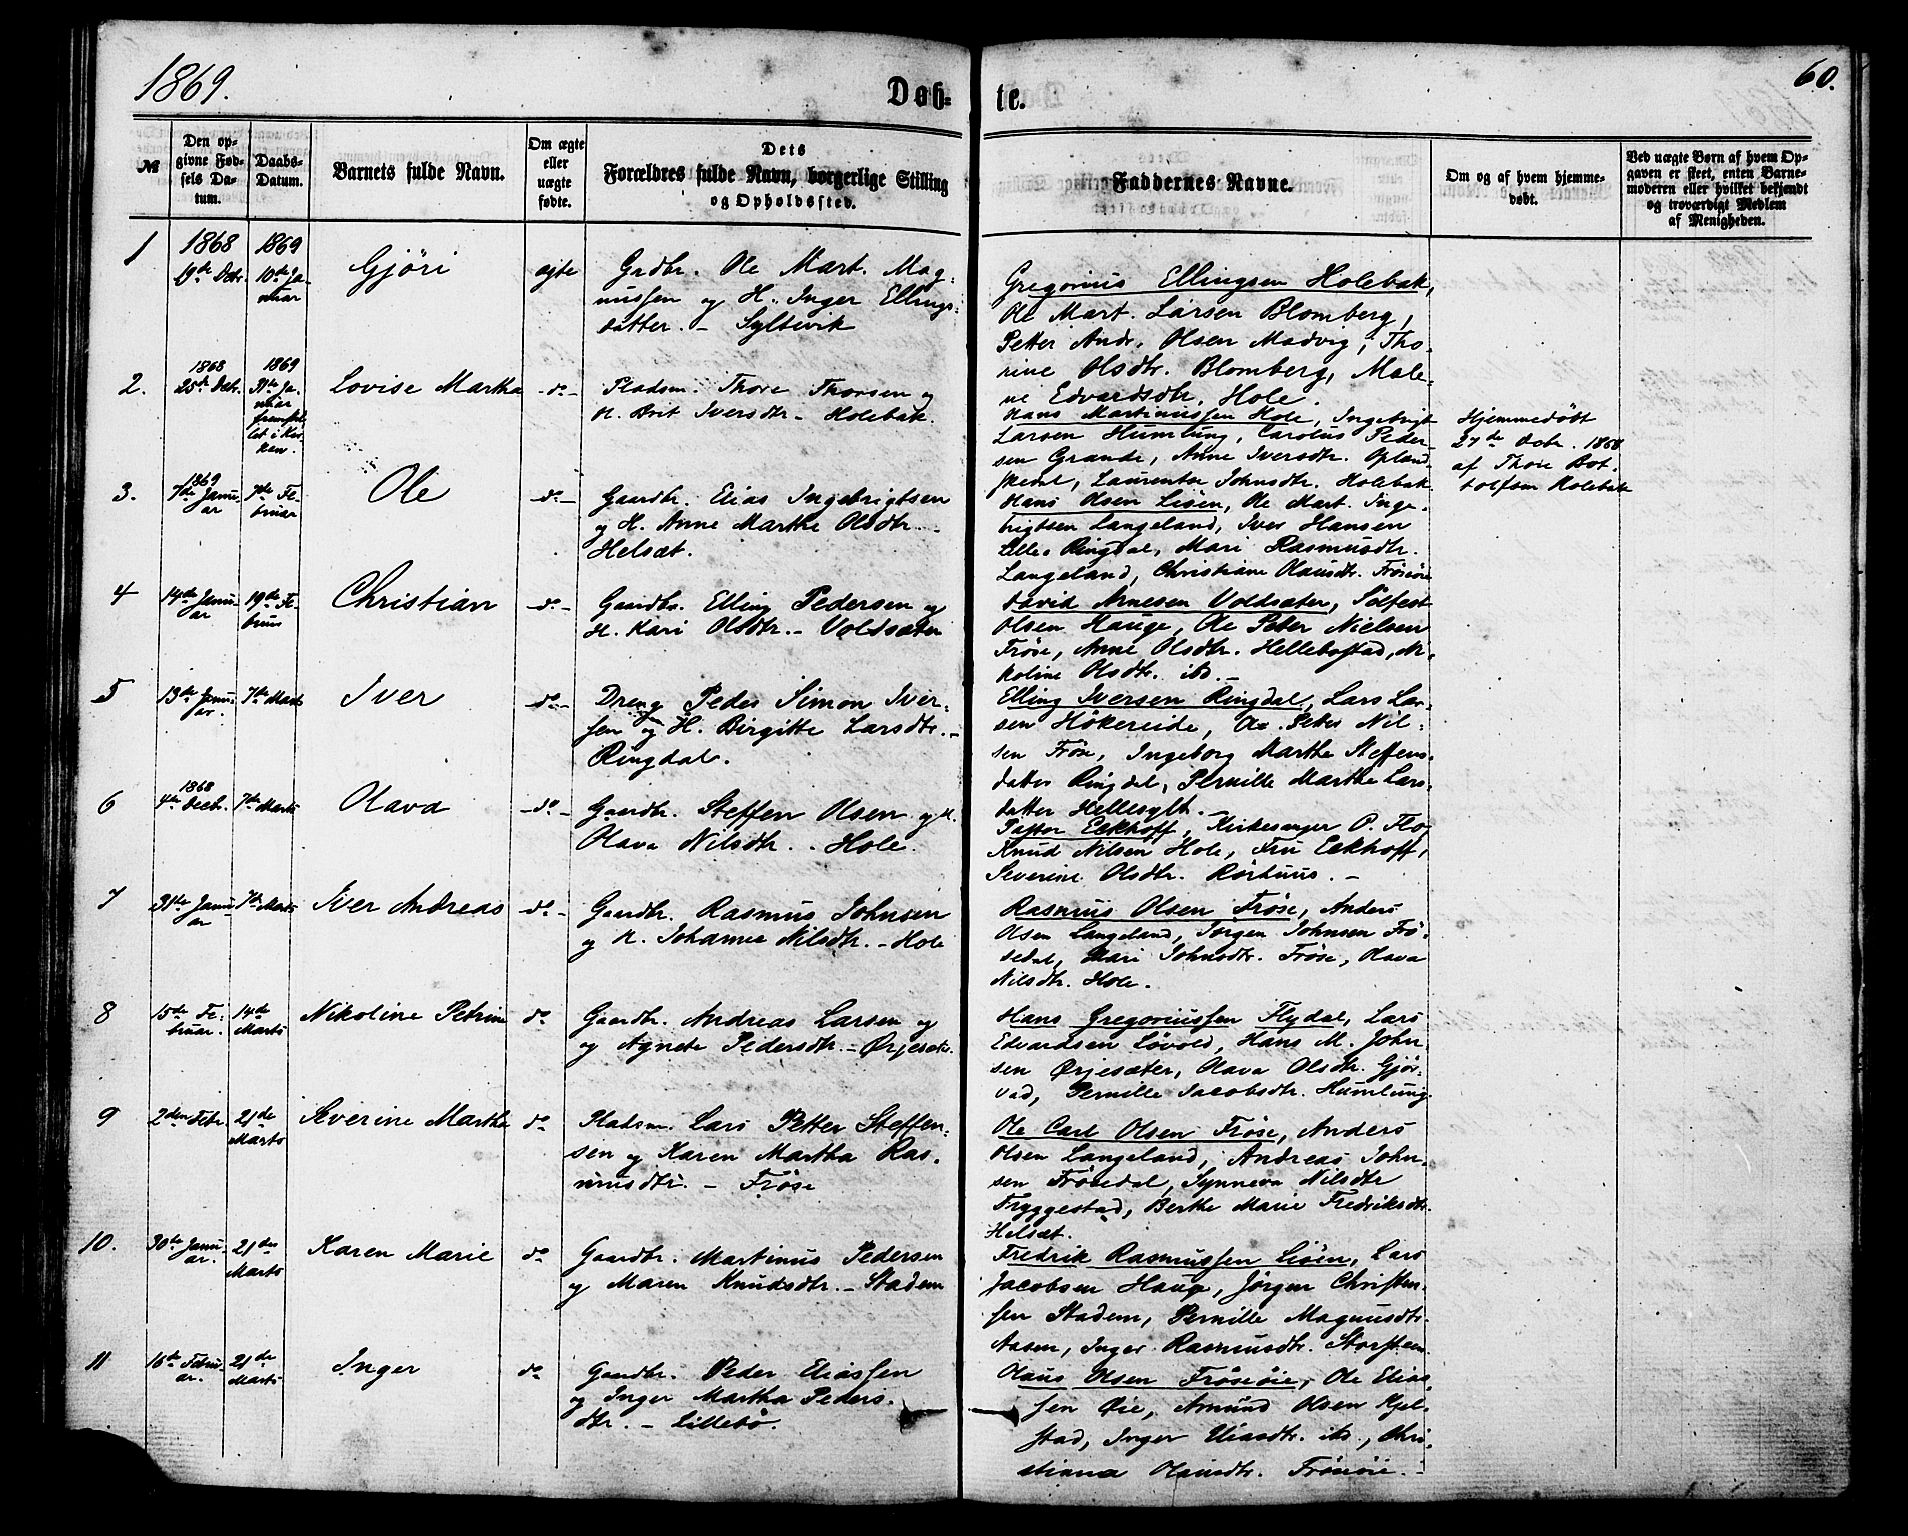 1869.
Døb-
te.
60.
№
Den op-
givne Fød-
sels Da-
tum.
Daabs-
Datum.
Barnets fulde Navn.
Om ægte
eller
uægte
fødte.
Dets
Forældres fulde Navn, borgerlige Stilling
og Opholdssted.
Faddernes Navne.
Om og af hvem hjemme-
døbt.
Ved uægte Børn af hvem Op-
gaven er skeet, enten Barne-
moderen eller hvilket bekjendt
og troværdigt Medlem
af Menigheden.
1
1868
19de Decbr.
1869
10de Ja-
nuar
Gjøri
ægte
Grdbr. Ole Mart. Mag-
nussen og H. Inger Ellings-
datter. - Syltevik
Gregorius Ellingsen Holebak,
Ole Mart. Larsen Blomberg,
Petter Andr. Olsen Madvig, Tho-
rine Olsdtr. Blomberg, Male-
ne Edvardsdtr. Hole.
2.
1868
25de Decbr.
1869
31te Ja-
nuar
fremstil-
let i Kir-
ken.
Lovise Martha
-do-
Pladsm. Thore Thorsen og
H. Brit Iversdtr - Holebak.
Hans Martinussen Hole, Ingebrigt
Larsen Humlung, Carolus Peder-
sen Grande, Anne Iversdtr. Opland-
skedal, Laurenta Johnsdtr. Holebak
Hjemmedøbt
27de Decbr. 1868
af Thore Bot-
tolfsen Holebak
3.
1869
7de Janu-
ar
7de Fe-
bruar
Ole
-do-
Gaardbr. Elias Ingebrigtsen
og H. Anne Marthe Olsdtr. -
Helsæt.
Hans Olsen Liøen, Ole Mart. Inge-
brigtsen Langeland, Iver Hansen
Lille-Ringdal, Mari Rasmusdtr.
Langeland, Christiane Olausdtr. Frøsøie
4
14de Janu-
ar
19de Fe-
bruar
Christian
-do-
Gaardbr. Elling Pedersen og
H. Kari Olsdtr. - Voldsæter
David Arnesen Voldsæter, Solfest
Olsen Hauge, Ole Peter Nielsen
Frøse, Anne Olsdtr. Hellebostad, Ni-
koline Olsdtr. ibd. -
5
13de Janu-
ar.
7de Marts
Iver
-do-
Dreng Peder Simon Iver-
sen og H. Birgitte Larsdtr. -
Ringdal.
Elling Iversen Ringdal, Lars Lar-
sen Høkereide, Ole Petter Nil-
sen Frøse, Ingeborg Marthe Steffens-
datter Ringdal, Pernille Marthe Lars-
datter Hellesylt. -
6
1868
4de Decb.
7de Marts
Olava
-do-
Gaardbr. Steffen Olsen og H.
Olava Nilsdtr. - Hole.
Pastor Eckhoff, Kirkesanger P. Flo,
Knud Nilsen Hole, Fru Eckhoff,
Severine Olsdtr. Rørhuus. -
7
31te Janu-
ar
7de Marts
Iver Andreas
-do-
Gaardbr. Rasmus Johnsen
og H. Johanne Nilsdtr. - Hole
Rasmus Olsen Frøse, Anders
Olsen Langeland, Jørgen Johnsen Frø-
sedal, Mari Johnsdtr. Frøse, Olava
Nilsdtr. Hole.
8
15de Fe-
bruar.
14de
Marts
Nikoline Petrine
do
Gaardbr. Andreas Larsen og
og Agnete Pedersdtr. - Ørjesæt.
Hans Gregoriussen Flydal, Lars
Edvardsen Løvold, Hans M. John-
sen Ørjesæter, Olava Olsdtr. Gjør-
vad, Pernille Jacobsdtr. Humlung.
9
2den Febr.
21de
Marts
Severine Martha
do
Pladsm. Lars Petter Steffen-
sen og Karen Martha Ras-
musdtr. - Frøse
Ole Carl Olsen Frøse, Anders
Olsen Langeland, Andreas John-
sen Frøsedal, Synneva Nilsdtr
Tryggestad, Berthe Marie Fredriksdtr.
Helsæt.
10.
30te Janu-
ar.
21de
Marts
Karen Marie
do
Gaardbr. Martinus Pedersen
og Maren Knudsdtr. - Stadem
Fredrik Rasmussen Liøen, Lars
Jacobsen Haug, Jørgen Christen-
sen Stadem, Pernille Magnusdtr.
Aasen, Inger Rasmusdtr. Storsteen
11
16de Febru-
ar.
21de
Marts
Inger
do
Gaardbr. Peder Eliassen
og Inger Martha Peders-
dtr. - Lillebø.
Olaus Olsen Frøsøie, Ole Elias-
sen Øie, Amund Olsen Kjel-
stad, Inger Eliasdtr. ibd., Chri-
stiana Olausdtr. Frøsøie. -